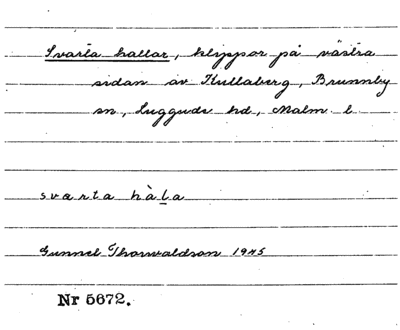 Svarta hallar, klippor på västra
sidan av Kullaberg, Brunnby
sn, Luggude hd, Malm. l.
svarta hàla
Gunnel Thorwaldson 1945
Nr 5672.